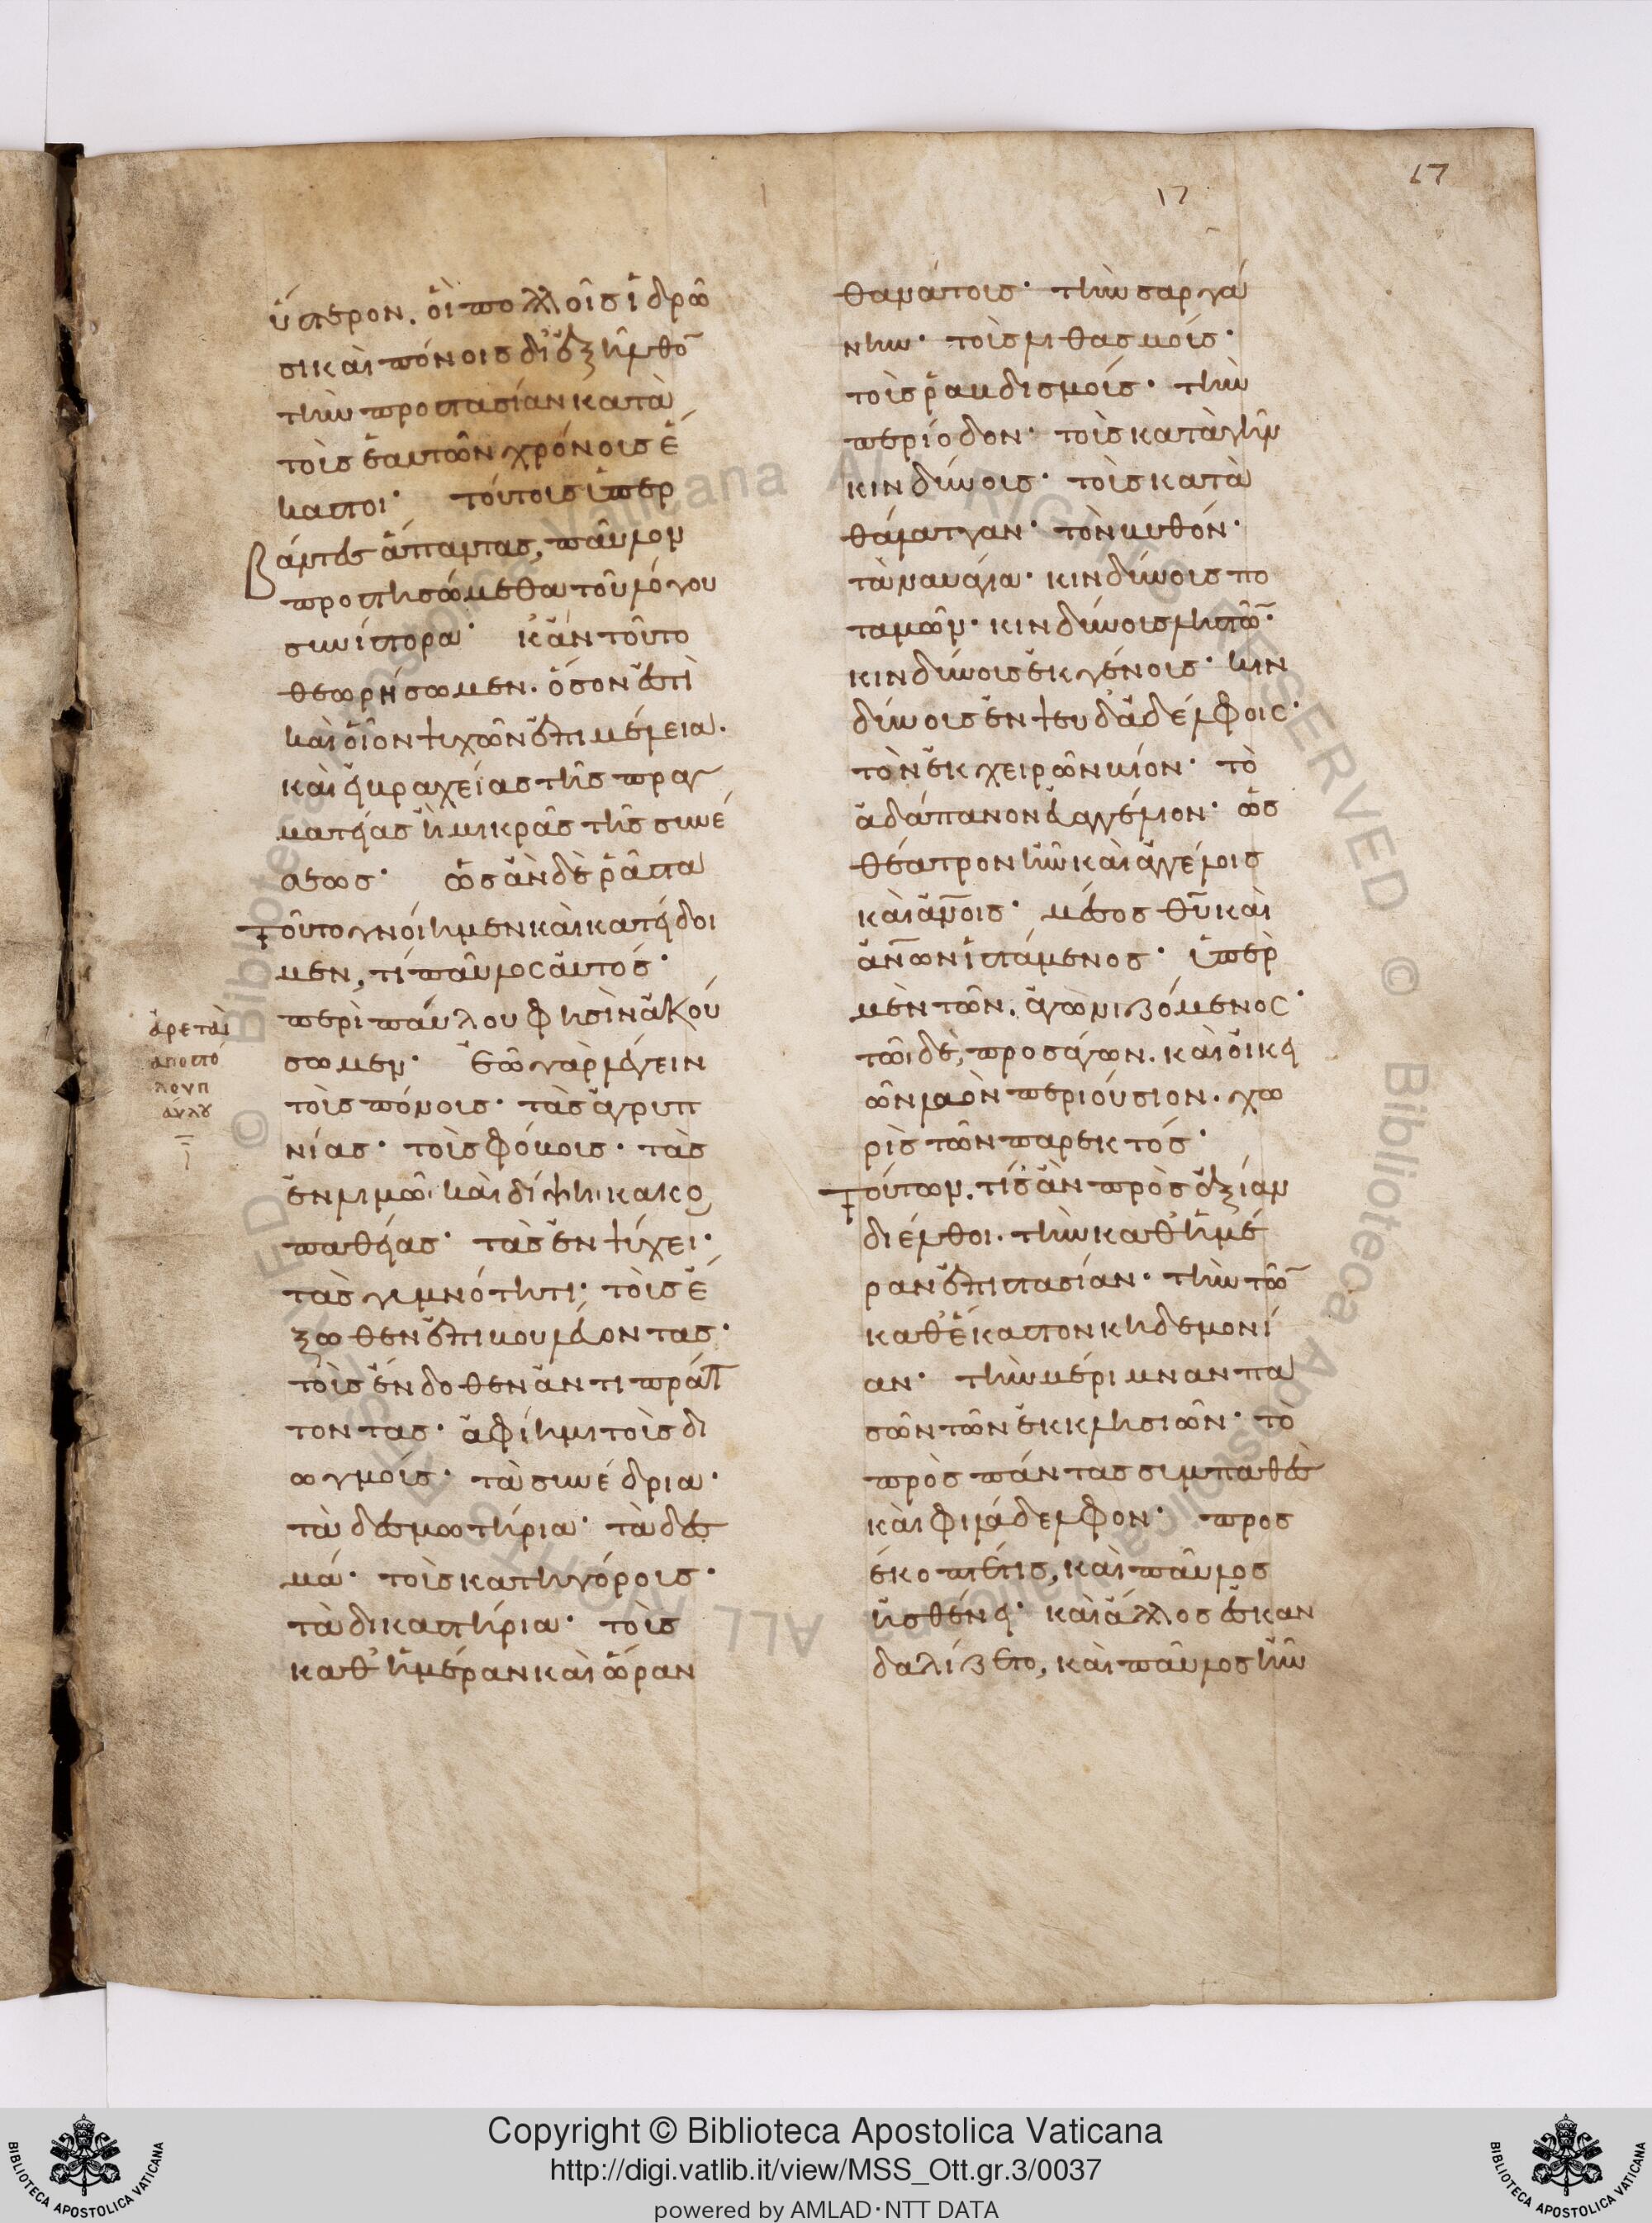 17
17
ὕστερον. οἳ πολλοῖς ἱδρῶ
σι καὶ πόνοις διεξῆλθο̅
τὴν προστασίαν κατὰ
τοῖς ἑαυτῶν χρόνοις ἕ
καστοι· τούτοις ὑπὲρ
αὐτὲς ἅπαντας, παῦλον
προστησώμεθα τοῦ λόγου
συνίστορα· κἂν τοῦτο
θεωρήσωμεν. ὅσον ἐστὶ
καὶ οἷον ψυχῶν ἐπιμέλεια.
καὶ εἰ βραχείας τῆς πραγ
ματείας ἢ μικρᾶς τῆς συνέ
σεως· ὡς ἂν δὲ ῥᾶστα
τοῦτο γνοίημεν καὶ κατείδοι
μεν, τί παῦλος αὐτὸς·
περὶ παύλου φησὶν ἀκού
σωμεν· ἐῶ γὰρ λέγειν
τοὺς πόνους· τὰς ἀγρυπ
νίας· τοὺς φόβους· τὰς
ἐν λιμῶ καὶ δίψηι κακο
παθείας· τὰς ἐν ψύχει·
τὰς γυμνότητι· τοὺς ἔ
ξωθεν ἐπιβουλεύοντας·
τοὺς ἔνδοθεν ἀντιπράτ
τοντας· ἀφίημι τοὺς δι
ωγμούς· τὰ συνέδρια·
τὰ δεσμωτήρια· τὰ δεσ
μά· τοὺς κατηγόρους·
τὰ δικαστήρια· τοὺς
καθ' ἡμέραν καὶ ὥραν
ἀρεταὶ
αποστό
λου π
αύλου
θανάτους· τὴν σαργά
νην· τοὺς λιθασμούς·
τοὺς ῥαβδισμούς· τὴν
περίοδον· τοὺς κατὰ γῆν
κινδύνους· τοὺς κατὰ
θάλατταν· τὸν βυθόν·
τὰ ναυάγια· κινδύνους πο
ταμῶν· κινδύνους ληστῶ̅·
κινδύνους ἐκ γένους· κιν
δύνους ἐν ψευδαδέλφοις·
τὸν ἐκ χειρῶν βίον· τὸ
ἀδάπανον εὐαγγέλιον· ὡς
θέατρον ἦν καὶ ἀγγέλοις
καὶ ἀν̅οις· μέσος θυ̅ καὶ
ἀν̅ων ἱστάμενος· ὑπὲρ
μὲν τῶν. ἀγωνιζόμενος·
τῶι δὲ, προσάγων. καὶ οἰκει
ῶν λαὸν περιούσιον. χω
ρὶς τῶν παρεκτός·
τούτων. τίς ἂν πρὸς ἀξίαν
διέλθοι. τὴν καθ' ἡμέ
ραν ἐπιστασίαν· τὴν τῶ̅
καθ' ἕκαστον κηδεμονί
αν· τὴν μέριμναν πα
σῶν τῶν ἐκκλησιῶν· τὸ
πρὸς πάντας συμπαθὲς
καὶ φιλάδελφον· προσ
έκοπτέ τις, καὶ παῦλος
ἠσθένει· καὶ ἄλλος ἐσκαν
δαλίζετο, καὶ παῦλος ἦν
Copyright © Biblioteca Apostolica Vaticana
http://digi.vatlib.it/view/MSS_Ott.gr.3/0037
powered by AMLAD·NTT DATA
BIBLIOTECA APOSTOLICA VATICANA
BIBLIOTECA APOSTOLICA VATICANA